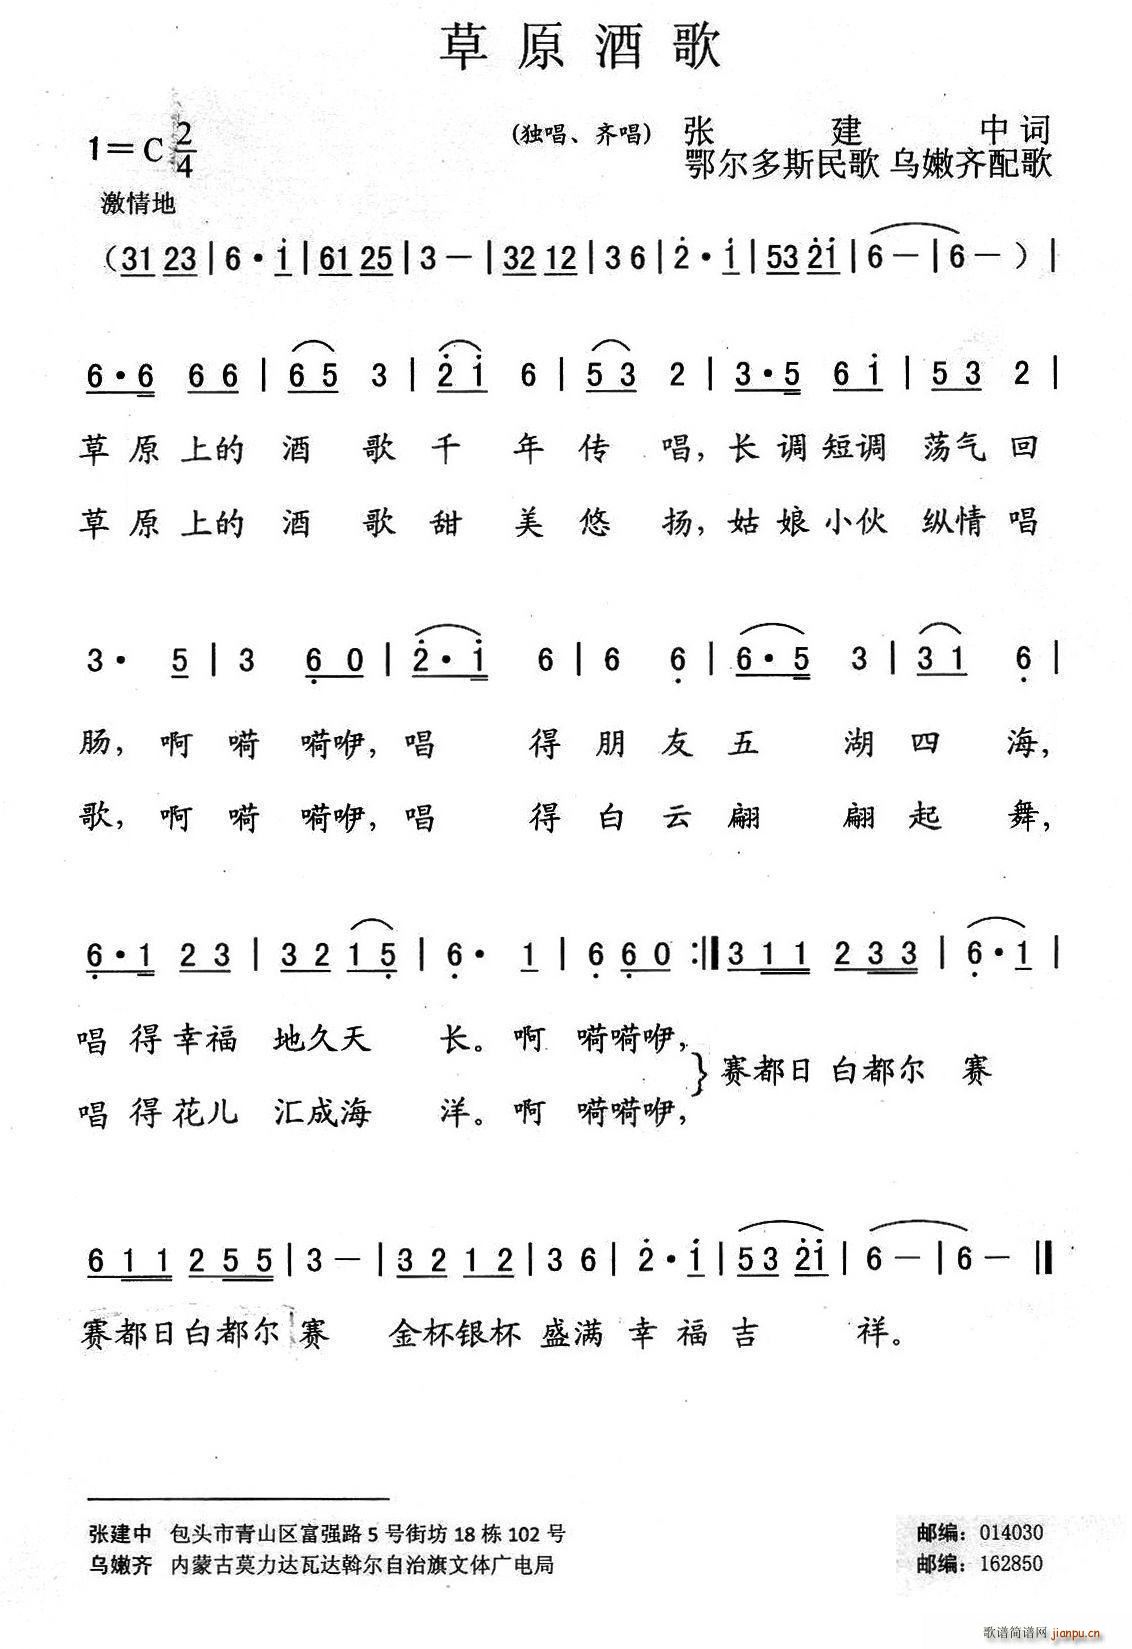 草原酒歌
1=C 2/4
(独唱、齐唱) 张建中词
鄂尔多斯民歌 乌嫩齐配歌
激情地
(31 23 | 6·i | 61 25 | 3 — | 32 12 | 3 6 | 2·i | 53 2i | 6 — | 6 — ) |
6·6 6 6 | 6 5 3 | 2 i 6 | 5 3 2 | 3·5 6 i | 5 3 2 |
草原上的酒歌千年传唱,长调短调荡气回
草原上的酒歌甜美悠扬,姑娘小伙纵情唱
3· 5 | 3 6 0 | 2·i 6 | 6 6 | 6·5 3 | 3 1 6 |
肠,啊嗬嗬咿,唱得朋友五湖四海,
歌,啊嗬嗬咿,唱得白云翩翩起舞,
6·1 2 3 | 3 2 1 5 | 6· 1 | 6 6 0 :‖ 3 1 1 2 3 3 | 6·1 |
唱得幸福地久天长。啊嗬嗬咿,
赛都日白都尔赛
唱得花儿汇成海洋。啊嗬嗬咿,
6 1 1 2 5 5 | 3 — | 3 2 1 2 | 3 6 | 2·i | 53 2i | 6 — | 6 — ‖
赛都日白都尔赛 金杯银杯盛满幸福吉祥。
张建中 包头市青山区富强路5号街坊18栋102号 邮编:014030
乌嫩齐 内蒙古莫力达瓦达斡尔自治旗文体广电局 邮编:162850
歌谱简谱网 jianpu.cn